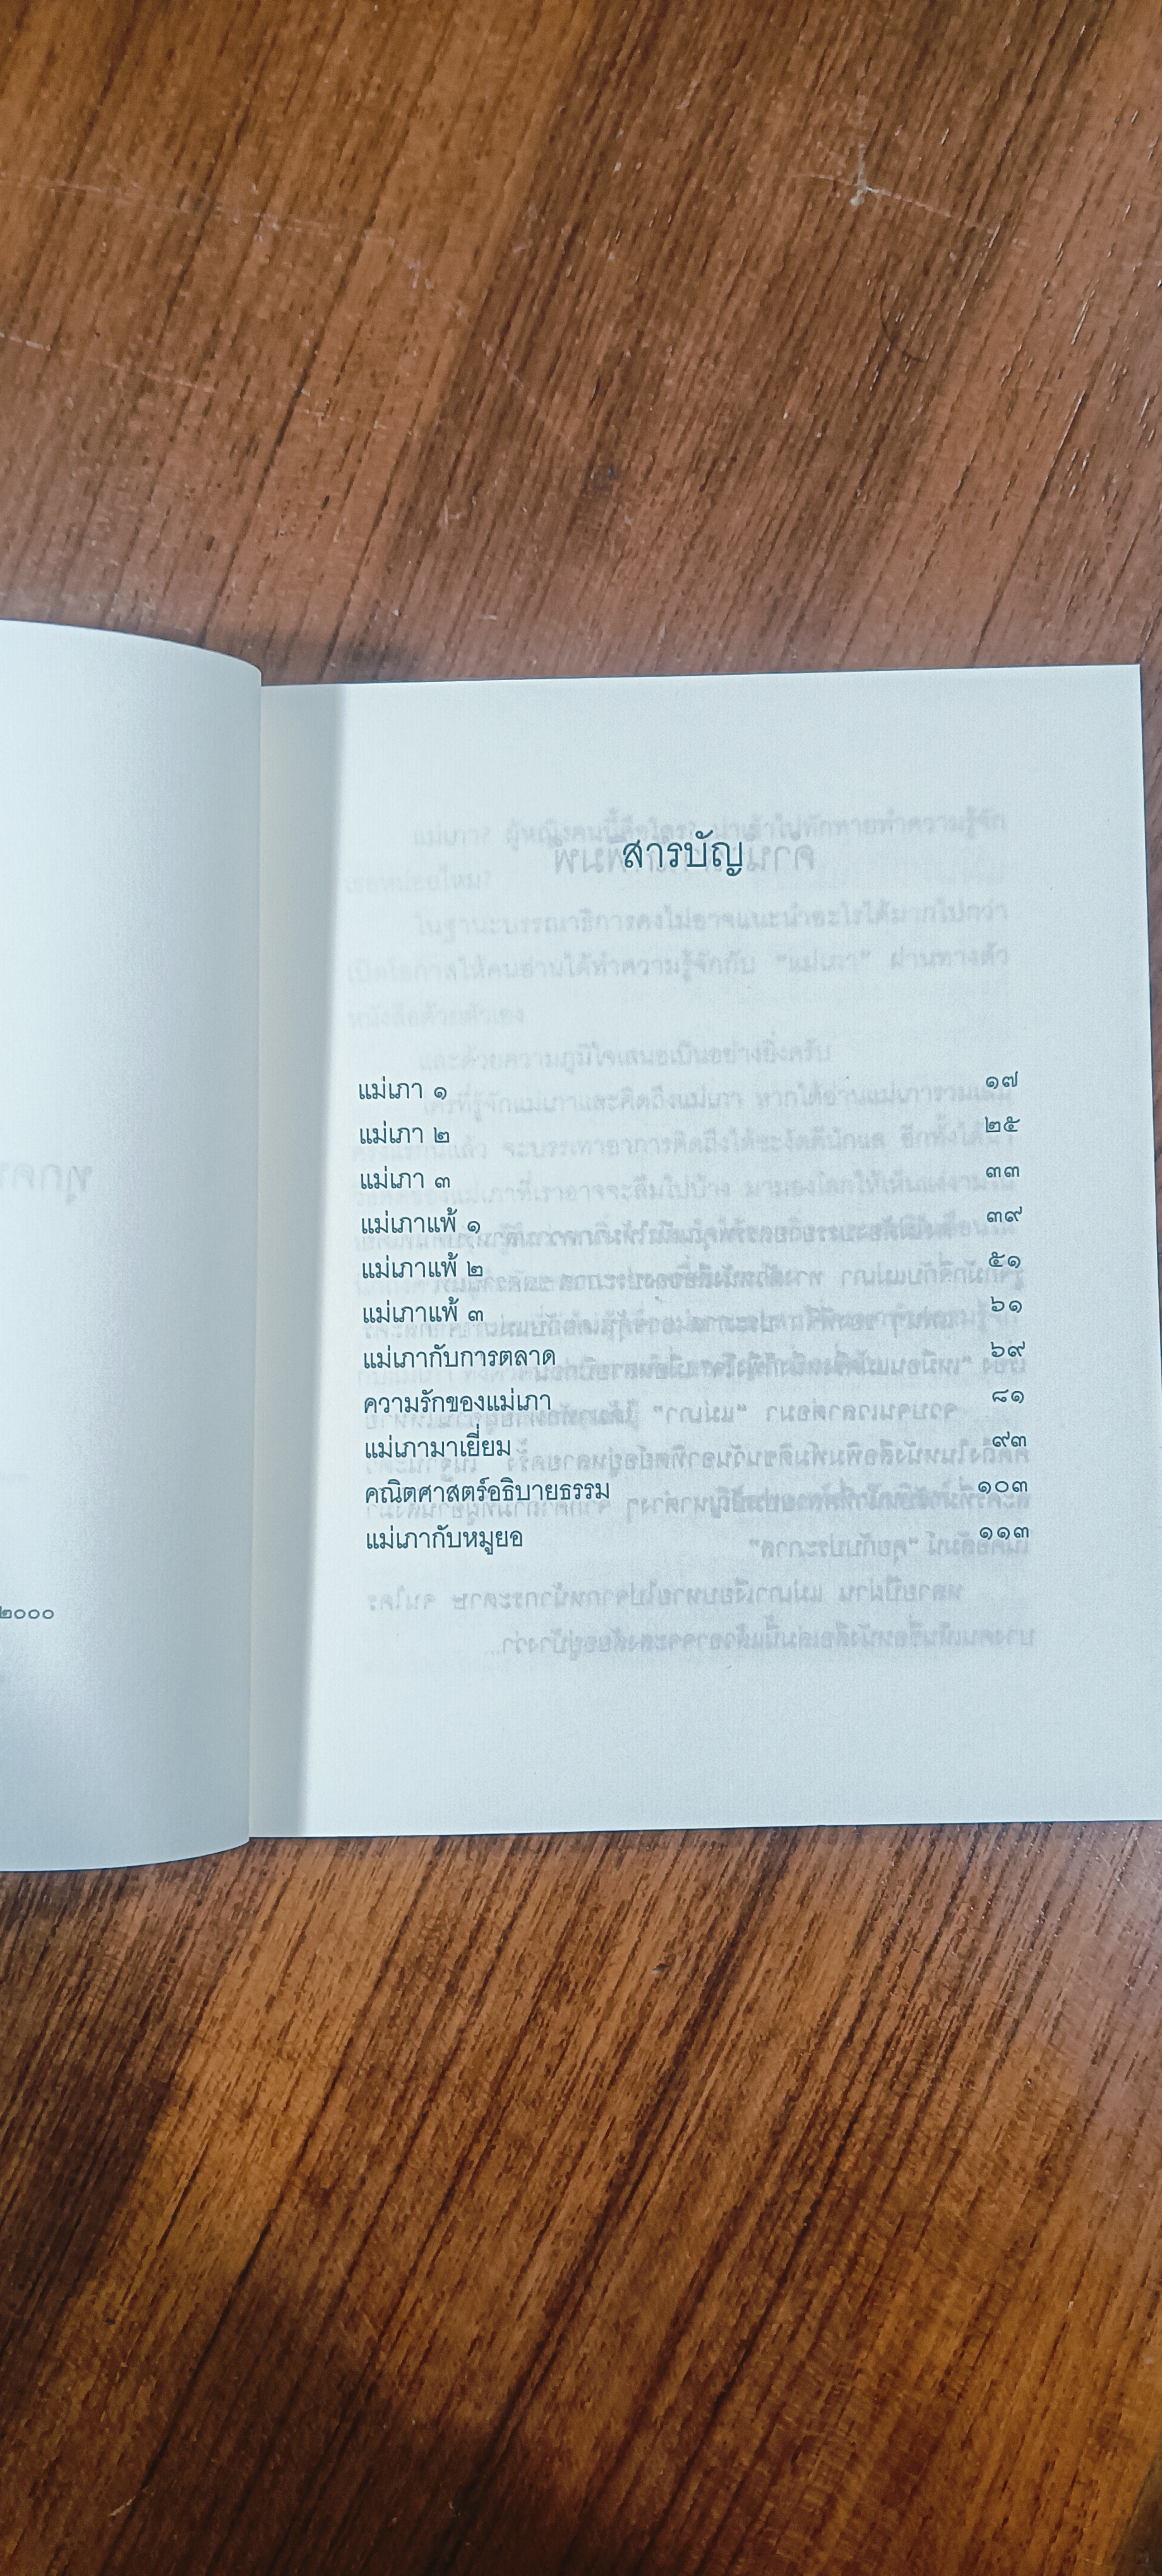 ๒๐๐๐
สารบัญ
แม่เภา ๑ ๑๗
แม่เภา ๒ ๒๕
แม่เภา ๓ ๓๓
แม่เภาแพ้ ๑ ๓๙
แม่เภาแพ้ ๒ ๕๑
แม่เภาแพ้ ๓ ๖๑
แม่เภากับการตลาด ๖๙
ความรักของแม่เภา ๘๑
แม่เภามาเยี่ยม ๙๓
คณิตศาสตร์อธิบายธรรม ๑๐๓
แม่เภากับหมูยอ ๑๑๓